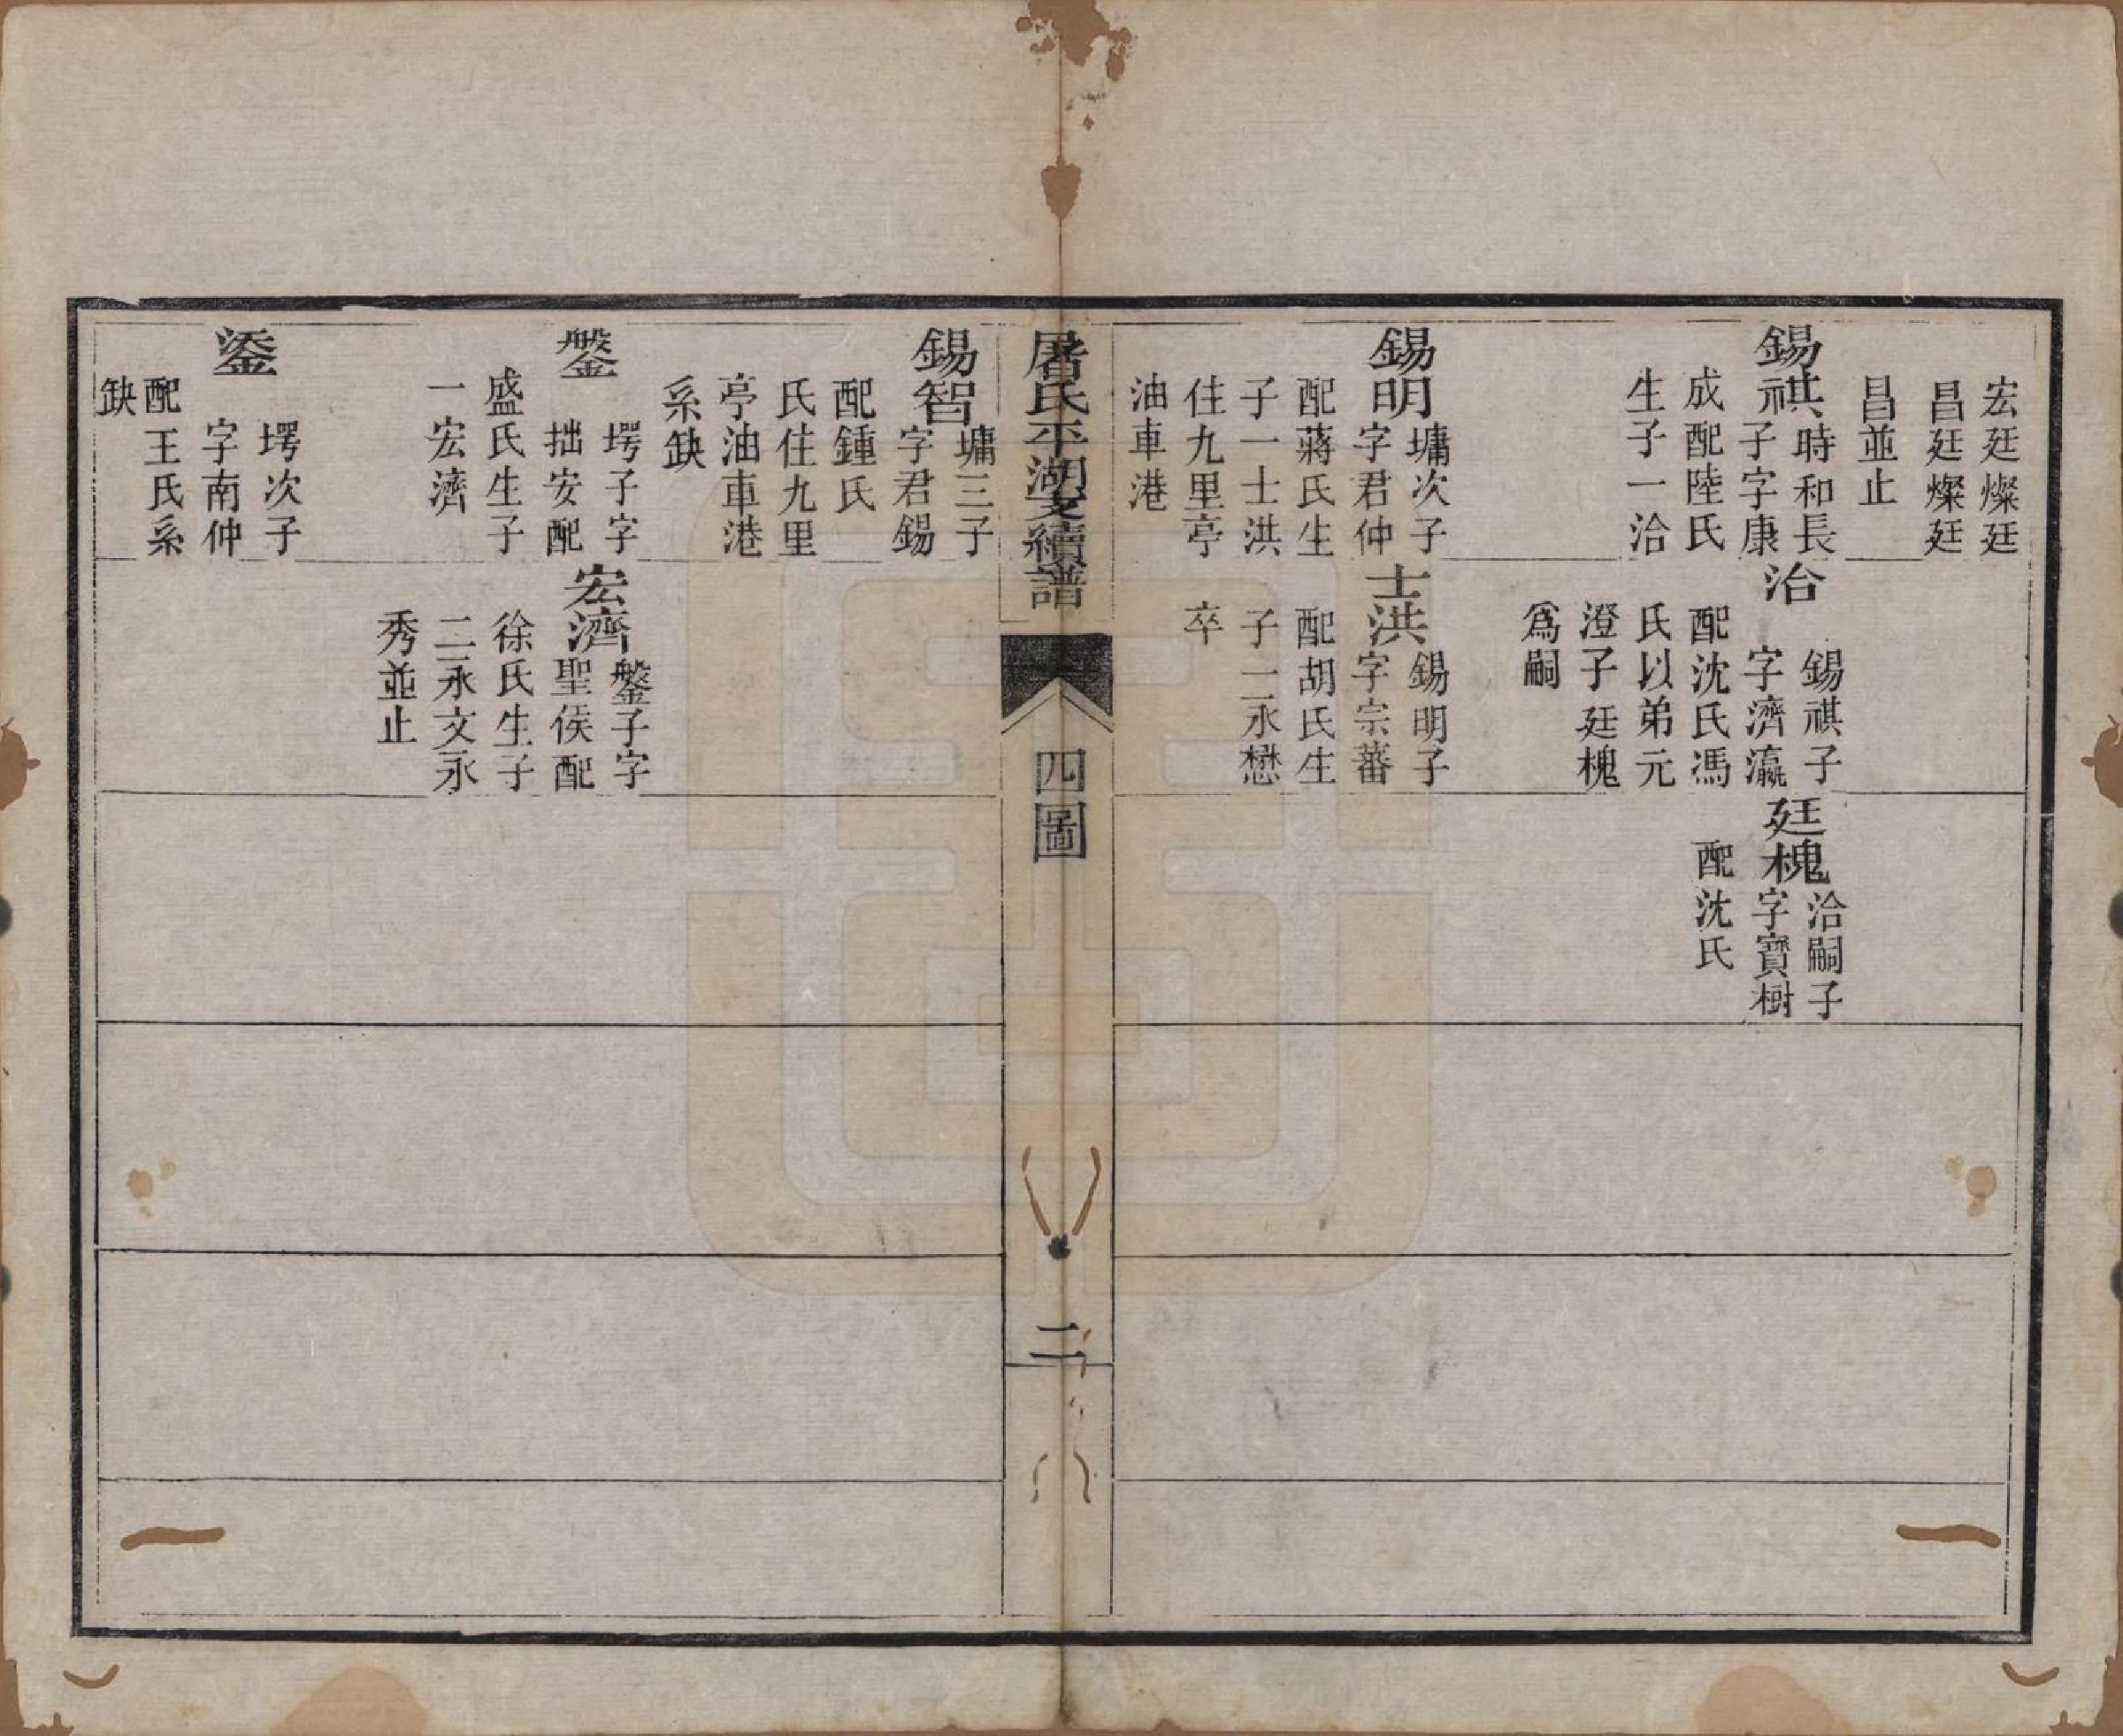 宏廷燦廷
昌廷燦廷
昌並止
錫祺
時和長
子字康
成配陸氏
生子一治
治
錫祺子
字濟瀛
配沈氏馮
氏以弟元
澄子廷槐
爲嗣
廷槐
治嗣子
字寶樹
配沈氏
錫明
墉次子
字君仲
配蔣氏生
子一士洪
住九里亭
油車港
士洪
錫明子
字宗蕃
配胡氏生
子二永懋
卒
屠氏平湖支續譜
四圖
二
錫智
墉三子
字君錫
配鍾氏
氏住九里
亭油車港
系缺
鎜
堮子字
拙安配
盛氏生子
一宏濟
宏濟
鎜子字
聖侯配
徐氏生子
二永文永
秀並止
鋈
堮次子
字南仲
配王氏系
缺